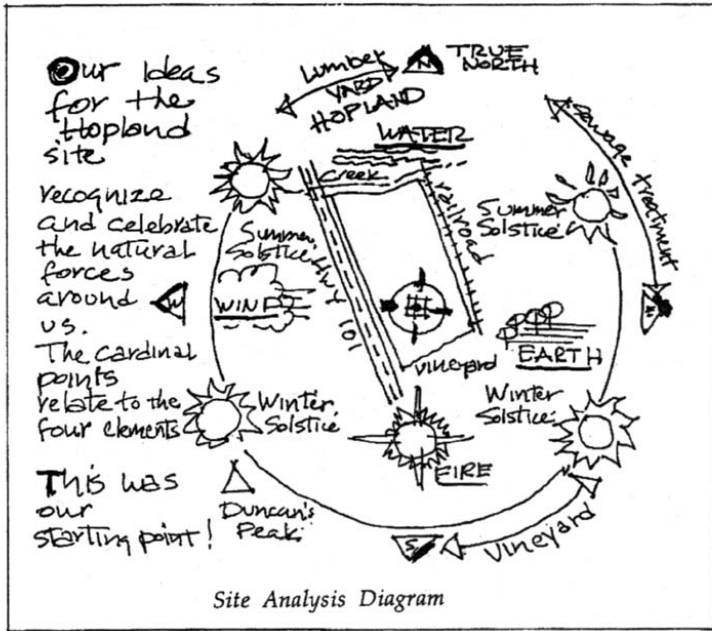 Our Ideas
for the
Hopland
site
recognize
and celebrate
the natural
forces
around
us.
The cardinal
points
relate to the
four elements
This was
our
starting point!
Lumber
YARD
HOPLAND
N
TRUE
NORTH
WATER
creek
railroad
Sewage treatment
Summer
Solstice
Summer
Solstice
Hwy 101
W
WIND
EARTH
vineyard
Winter
Solstice
Winter
Solstice
FIRE
Duncan's
Peak
S
Vineyard
Site Analysis Diagram